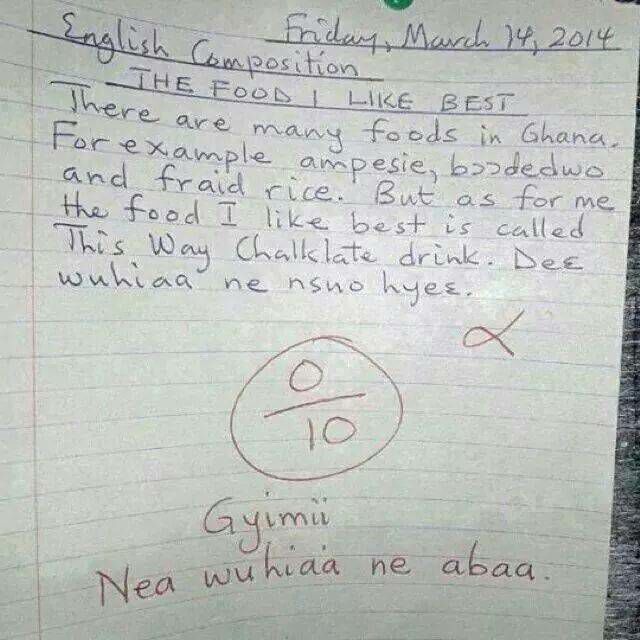 Friday, March 14, 2014
English Composition
THE FOOD I LIKE BEST
There are many foods in Ghana.
For example ampesie, bɔɔdedwo
and fraid rice. But as for me
the food I like best is called
This Way Chalklate drink. Deɛ
wuhiaa ne nsuo hyeɛ.
0
10
Gyimii
Nea wuhiaa ne abaa.